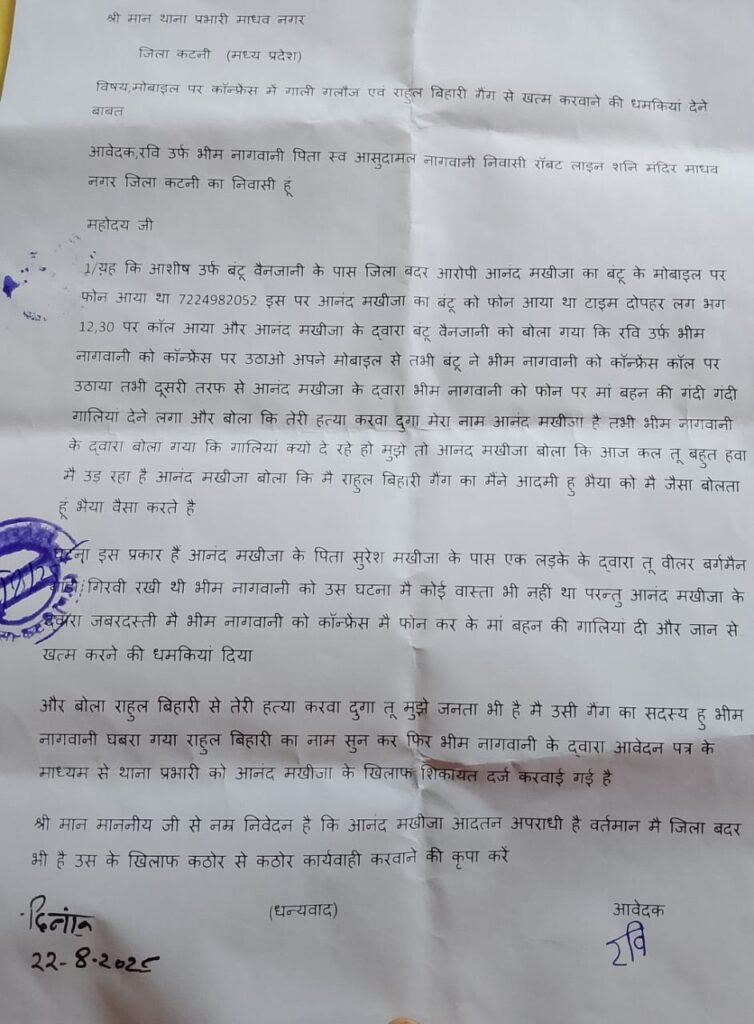 श्री मान थाना प्रभारी माधव नगर
जिला कटनी (मध्य प्रदेश)
विषय,मोबाइल पर कॉन्फ्रेंस में गाली गलौज एवं राहुल बिहारी गैंग से खत्म करवाने की धमकियां देने
बाबत
आवेदक,रवि उर्फ भीम नागवानी पिता स्व आसुदामल नागवानी निवासी रॉबट लाइन शनि मंदिर माधव
नगर जिला कटनी का निवासी हूं
महोदय जी
1/यह कि आशीष उर्फ बंटू वैनजानी के पास जिला बदर आरोपी आनंद मखीजा का बंटू के मोबाइल पर
फोन आया था 7224982052 इस पर आनंद मखीजा का बंटू को फोन आया था टाइम दोपहर लग भग
12,30 पर कॉल आया और आनंद मखीजा के द्वारा बंटू वैनजानी को बोला गया कि रवि उर्फ भीम
नागवानी को कॉन्फ्रेंस पर उठाओ अपने मोबाइल से तभी बंटू ने भीम नागवानी को कॉन्फ्रेंस कॉल पर
उठाया तभी दूसरी तरफ से आनंद मखीजा के द्वारा भीम नागवानी को फोन पर मां बहन की गंदी गंदी
गालियां देने लगा और बोला कि तेरी हत्या करवा दुगा मेरा नाम आनंद मखीजा है तभी भीम नागवानी
के द्वारा बोला गया कि गालियां क्यों दे रहे हो मुझे तो आनंद मखीजा बोला कि आज कल तू बहुत हवा
मै उड़ रहा है आनंद मखीजा बोला कि मै राहुल बिहारी गैंग का मैंने आदमी हु भैया को मै जैसा बोलता
हूं भैया वैसा करते है
घटना इस प्रकार हैं आनंद मखीजा के पिता सुरेश मखीजा के पास एक लड़के के द्वारा तू वीलर बर्गमैन
गिरवी रखी थी भीम नागवानी को उस घटना मै कोई वास्ता भी नहीं था परन्तु आनंद मखीजा के
द्वारा जबरदस्ती मै भीम नागवानी को कॉन्फ्रेंस मै फोन कर के मां बहन की गालियां दी और जान से
खत्म करने की धमकियां दिया
और बोला राहुल बिहारी से तेरी हत्या करवा दुगा तू मुझे जनता भी है मै उसी गैंग का सदस्य हु भीम
नागवानी घबरा गया राहुल बिहारी का नाम सुन कर फिर भीम नागवानी के द्वारा आवेदन पत्र के
माध्यम से थाना प्रभारी को आनंद मखीजा के खिलाफ शिकायत दर्ज करवाई गई है
श्री मान माननीय जी से नम्र निवेदन है कि आनंद मखीजा आदतन अपराधी है वर्तमान मै जिला बदर
भी है उस के खिलाफ कठोर से कठोर कार्यवाही करवाने की कृपा करें
दिनांक (धन्यवाद) आवेदक
22-8-2025 रवि